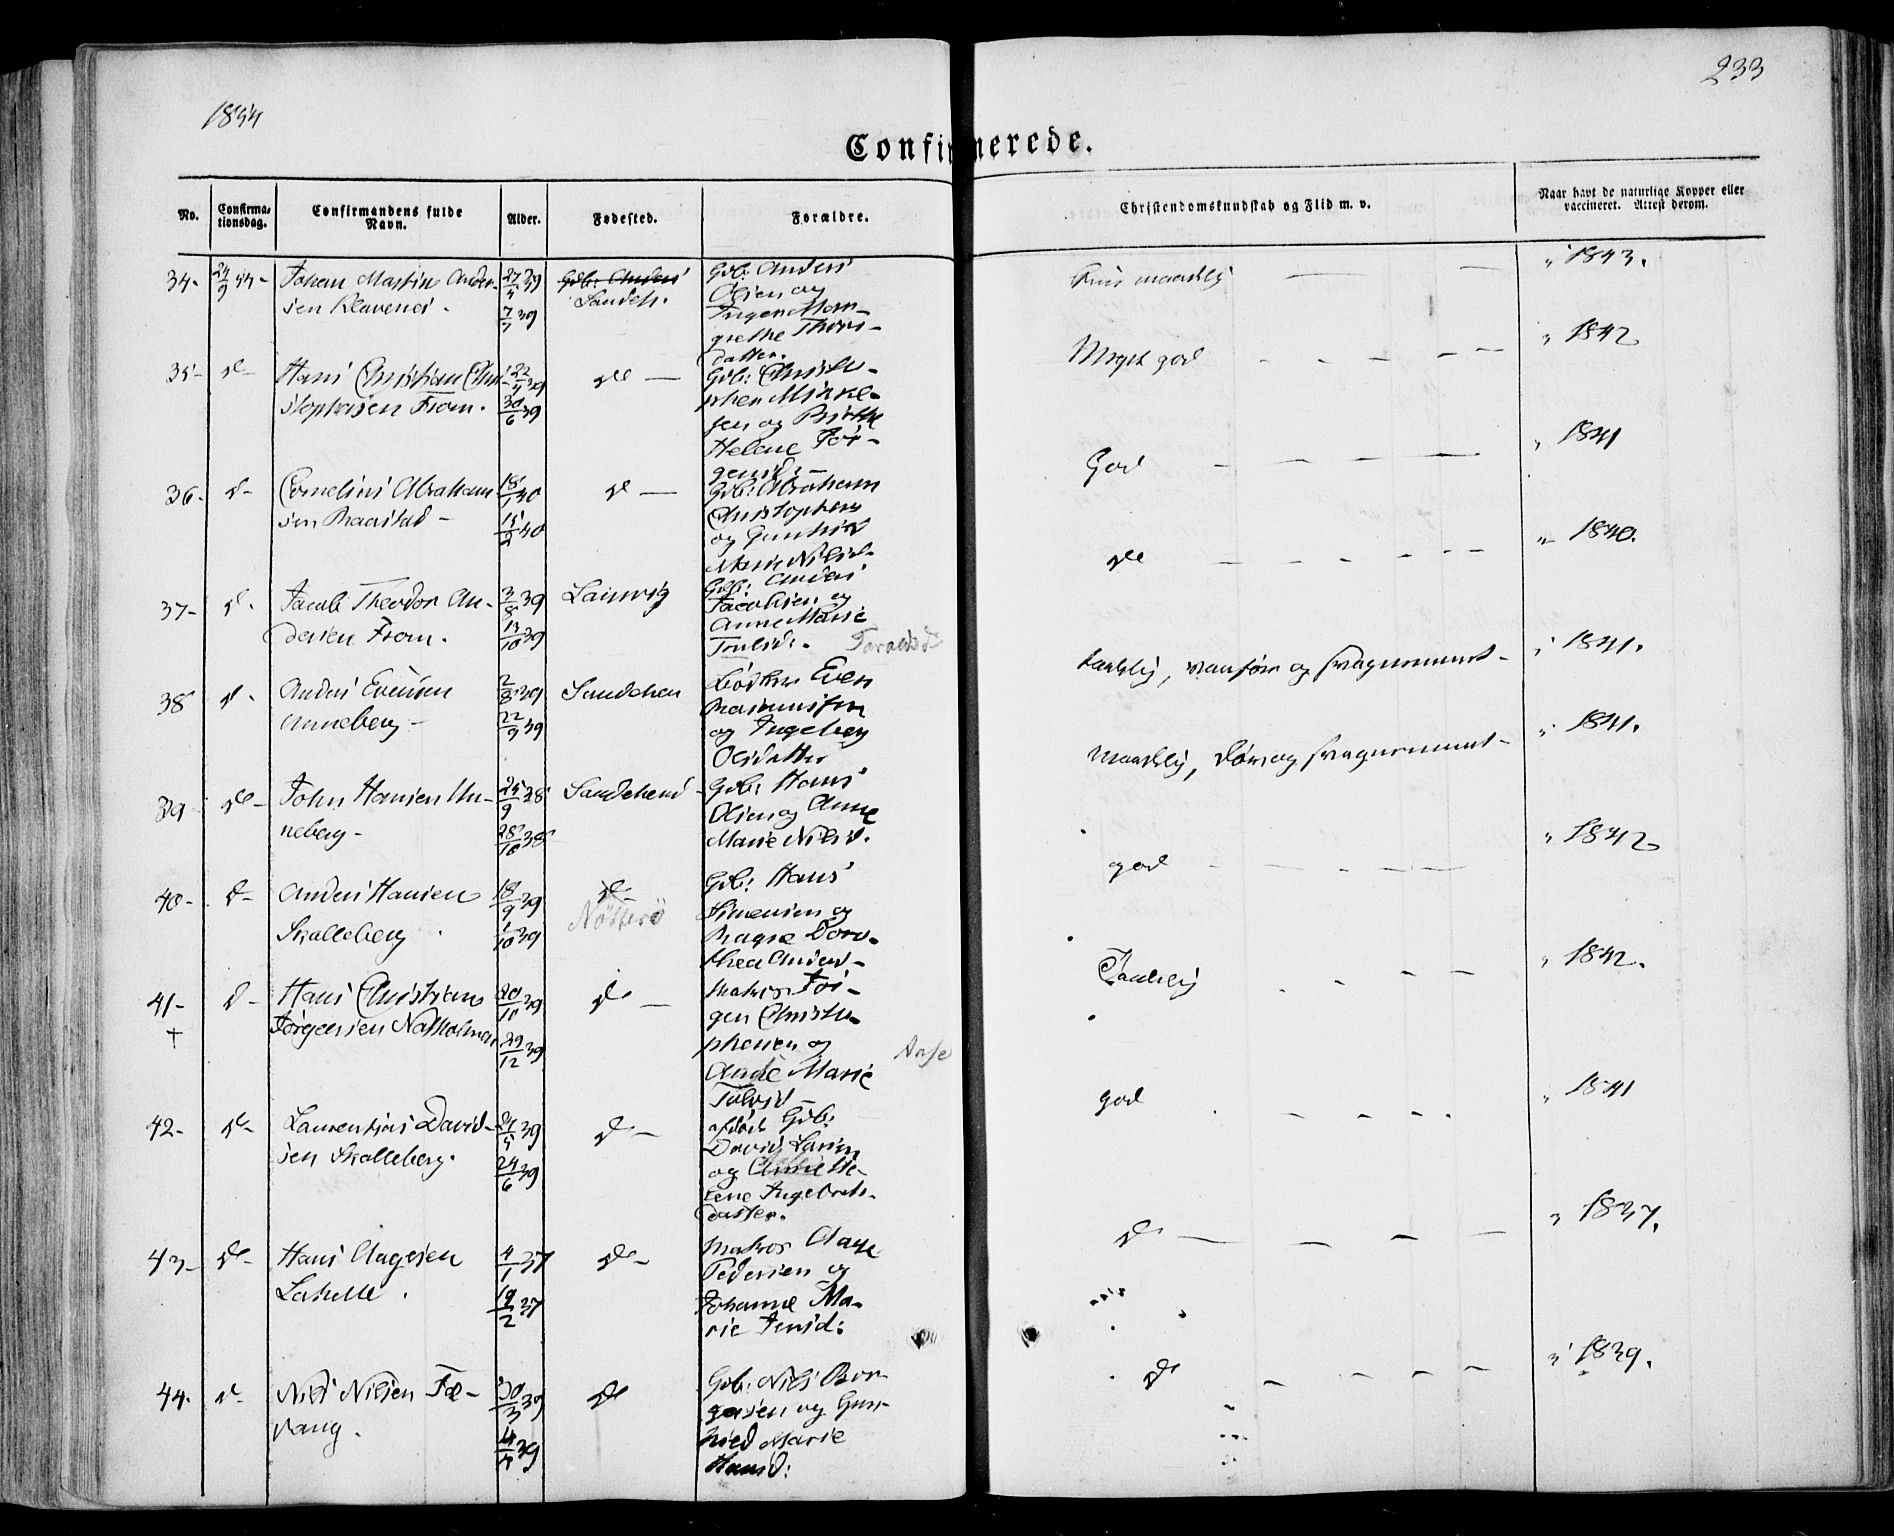 1854
233
Confirmerede.
No.
Confirma-
tionsdag.
Confirmandens fulde
Navn.
Alder.
Fødested.
Forældre.
Christendomskundskab og Flid m. v.
Naar havt de naturlige Kopper eller
vaccineret. Attest derom.
34-
24/9 54-
Johan Martin Ander-
sen Klavenes.
27/4 39
7/7 39
Gdb: Anders
Sandeh.
Gdb: Anders
Olsen og
Inger Mar-
grethe Thors-
datter.
maadelig
" 1843.
35-
do-
Hans Christian Chri-
stophersen Fram.
22/4 39
30/6 39
do -
Gdb: Christo-
pher Mikkel-
sen og Birthe
Helene Jør-
gensd: -
Meget god - - - - -
" 1842
36-
do-
Cornelius Abraham-
sen Raastad -
18/1 40
15/2 40
do -
Gdb: Abraham
Christophers
og Gunhild
Marie Nilsd.
God - - - - -
" 1841
37-
do.
Jacob Theodor An-
dersen Fram.
3/8 39
13/10 39
Laurvig
Gdb: Anders
Jacobsen og
Anne Marie
Trulsd:.
do - - - - - -
" 1840.
38
do.
Anders Evensen
Unneberg -
2/8 39
22/9 39
Sandehen
Even
Rasmussen
og Ingeborg
Olsdatter
taalelig, vanfør og svagnemmet -
" 1841.
39
do-
John Hansen Un-
neberg -
25/9 38
28/10 38
Sandehend
Gdb: Hans
Olsen og Anne
Marie Nilsd.
Maadelig, døv og svagnemmet -
" 1841.
40-
do-
Anders Hansen
Skalleberg.
18/9 39
1/10 39
do-
Nötterö
Gdb: Hans
Simensen og
Doro-
thea Andersd -
god - - - - -
" 1842
41-
+
do -
Hans Christian
Jørgensen Natholmen
20/10 39
29/12 39
do -
Matros Jør-
gen Christo-
phersen og
Anne Marie
Taalelig - - - -
" 1842.
42-
do-
Laurentius David-
sen Skalleberg.
24/5 39
24/6 39
do -
afdøde Gdb:
David Larsen
og Anne He-
lene Ingebrets-
datter.
god . - - - -
" 1841
43-
do-
Hans Aagesen
Lahelle.
4/1 37
19/2 37
do-
Matros Aage
Pedersen og
Johanne Ma-
rie Jensd:
do - - - - -
" 1837.
44.
do
Nils Nilsen Fe-
vang.
30/3 39
do
Gdb: Nils Bør-
gesen og Gun-
hild Marie
Hansd:
do - - - -
" 1839.